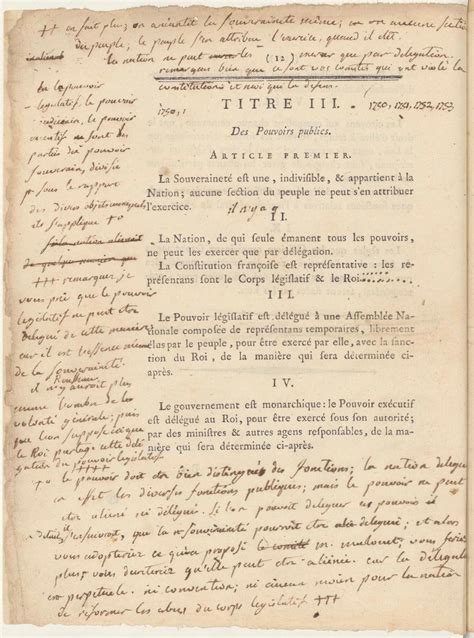 ++ en fait plus; on anéantit la souveraineté même, car on aucune section
du peuple, le peuple s'en attribue l'exercice, quand il dit.
la nation ne peut exercer que par délégation.
(12)
remarquez bien que ce sont vos comités qui ont violé la
constitution et moi qui la défens.
TITRE III.
Des Pouvoirs publics.
ARTICLE PREMIER.
La Souveraineté est une, indivisible, & appartient à la
Nation; aucune section du peuple ne peut s'en attribuer
l'exercice.
II.
La Nation, de qui seule émanent tous les pouvoirs,
ne peut les exercer que par délégation.
La Constitution françoise est représentative : les repré-
sentans sont le Corps législatif & le Roi.
III.
Le Pouvoir législatif est délégué à une Assemblée Na-
tionale composée de représentans temporaires, librement
élus par le peuple, pour être exercé par elle, avec la sanc-
tion du Roi, de la manière qui sera déterminée ci-
après.
IV.
Le gouvernement est monarchique : le Pouvoir exécutif
est délégué au Roi, pour être exercé sous son autorité;
par des ministres & autres agens responsables, de la ma-
nière qui sera déterminée ci-après.
le pouvoir
législatif, le pouvoir
judiciaire, le pouvoir
exécutif ne sont des
parties du pouvoir
souverain, divisé
sous le rapport
des divers objets auxquels
ils s'applique ++
+++ remarquez je
vous prie que le pouvoir
législatif ne peut être
délégué de cette manière
car il est l'essence même
de la souveraineté.
Rousseau
il n'y auroit plus
même l'ombre de la
volonté générale; mais
que l'on suppose ici que
le Roi partage cette délé
gation du pouvoir législatif
++++
le pouvoir doit être bien distingué des fonctions; la nation délègue
en effet les diverses fonctions publiques; mais le pouvoir ne peut
être aliéné ni délégué. Si l'on pouvoit déléguer ces pouvoirs
en détail, il s'ensuivroit, que la souveraineté pourroit être déléguée; et alors
vous adopteriez ce qu'a proposé malouet, vous
plus, vous qu'elle peut être aliénée. car la délégation
est perpétuelle. ni convention; ni aucun moien pour la nation
de réformer les abus du corps législatif +++